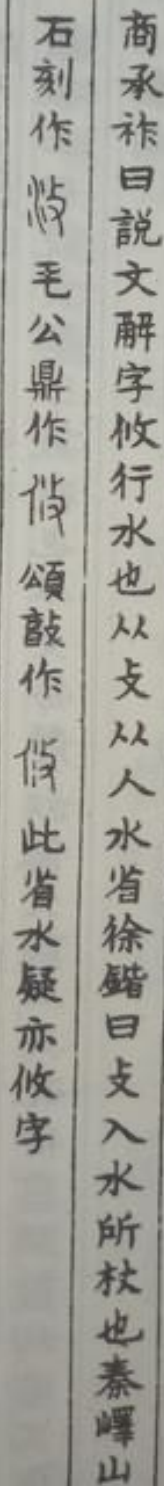 商承祚曰説文解字攸行水也从攴从人水省徐鍇曰攴入水所杖也秦嶧山
石刻作 毛公鼎作 頌敦作 此省水疑亦攸字